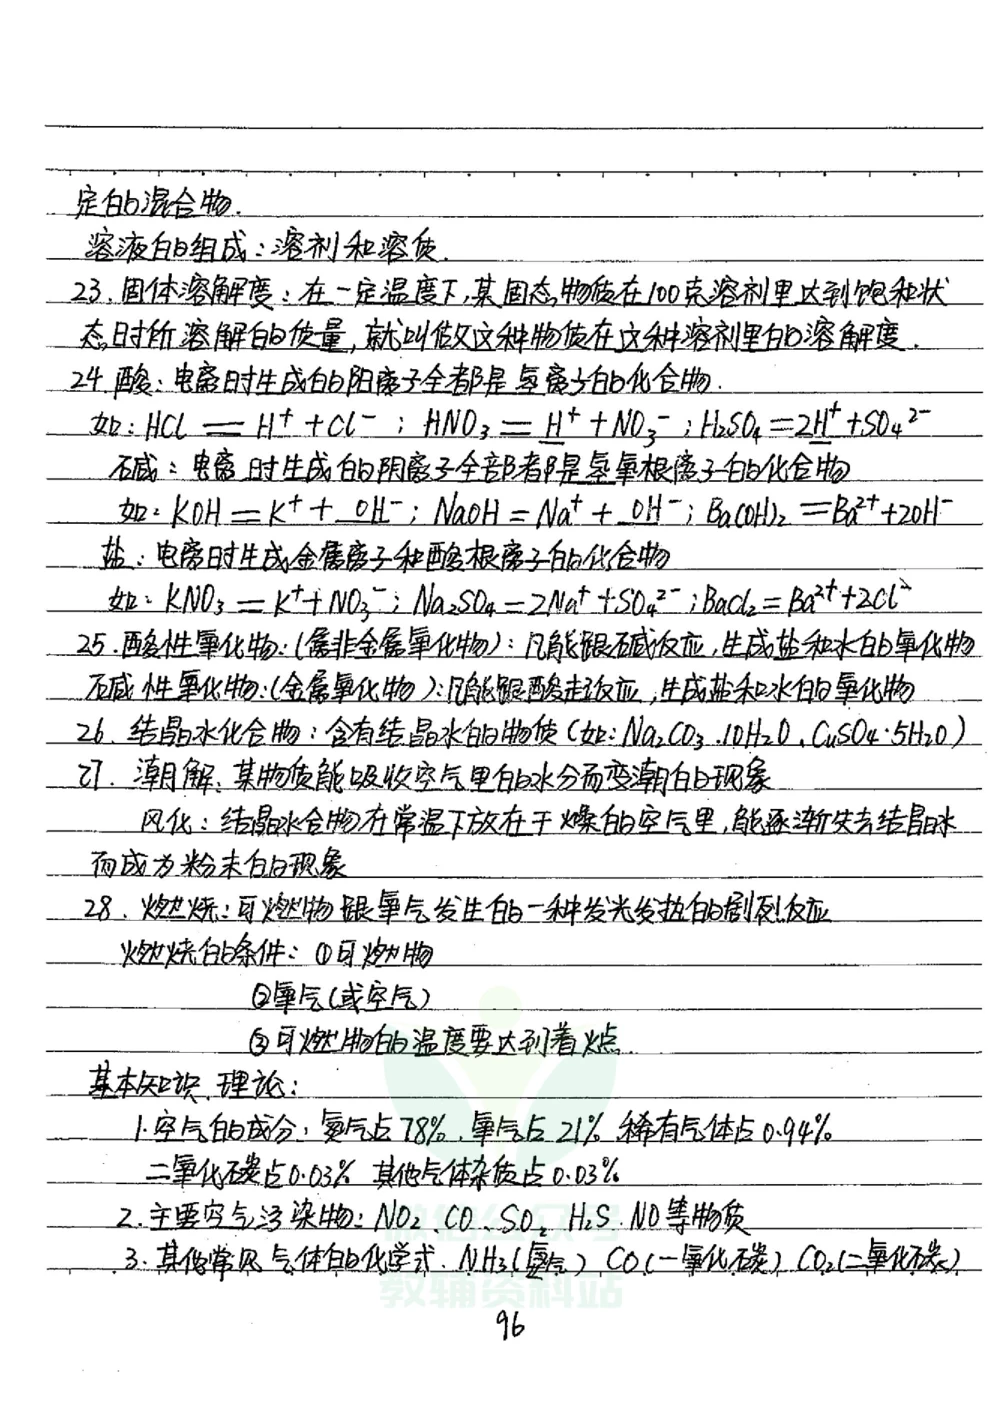 定的混合物.
溶液的组成:溶剂和溶质.
23.固体溶解度:在一定温度下,某固态物质在100克溶剂里达到饱和状
态时所溶解的质量,就叫做这种物质在这种溶剂里的溶解度.
24.酸:电离时生成的阳离子全部是氢离子的化合物.
如:HCl = H⁺ + Cl⁻ ; HNO₃ = H⁺ + NO₃⁻ ; H₂SO₄ = 2H⁺ + SO₄²⁻
碱:电离时生成的阴离子全部都是氢氧根离子的化合物
如:KOH = K⁺ + OH⁻ ; NaOH = Na⁺ + OH⁻ ; Ba(OH)₂ = Ba²⁺ + 2OH⁻
盐:电离时生成金属离子和酸根离子的化合物
如:KNO₃ = K⁺ + NO₃⁻ ; Na₂SO₄ = 2Na⁺ + SO₄²⁻ ; BaCl₂ = Ba²⁺ + 2Cl⁻
25.酸性氧化物:(属非金属氧化物):凡能跟碱反应,生成盐和水的氧化物
碱性氧化物:(金属氧化物):凡能跟酸起反应,生成盐和水的氧化物
26.结晶水化合物:含有结晶水的物质(如:Na₂CO₃·10H₂O、CuSO₄·5H₂O)
27.潮解:某物质能吸收空气里的水分而变潮的现象
风化:结晶水合物在常温下放在干燥的空气里,能逐渐失去结晶水
而成为粉末的现象
28.燃烧:可燃物跟氧气发生的一种发光发热的剧烈反应
燃烧的条件:①可燃物
②氧气(或空气)
③可燃物的温度要达到着火点.
基本知识、理论:
1.空气的成分:氮气占78%、氧气占21%、稀有气体占0.94%
二氧化碳占0.03% 其他气体杂质占0.03%
2.主要空气污染物:NO₂、CO、SO₂、H₂S、NO等物质
3.其他常见气体的化学式、NH₃(氨气) CO(一氧化碳) CO₂(二氧化碳)
微信公众号
教辅资料站
96